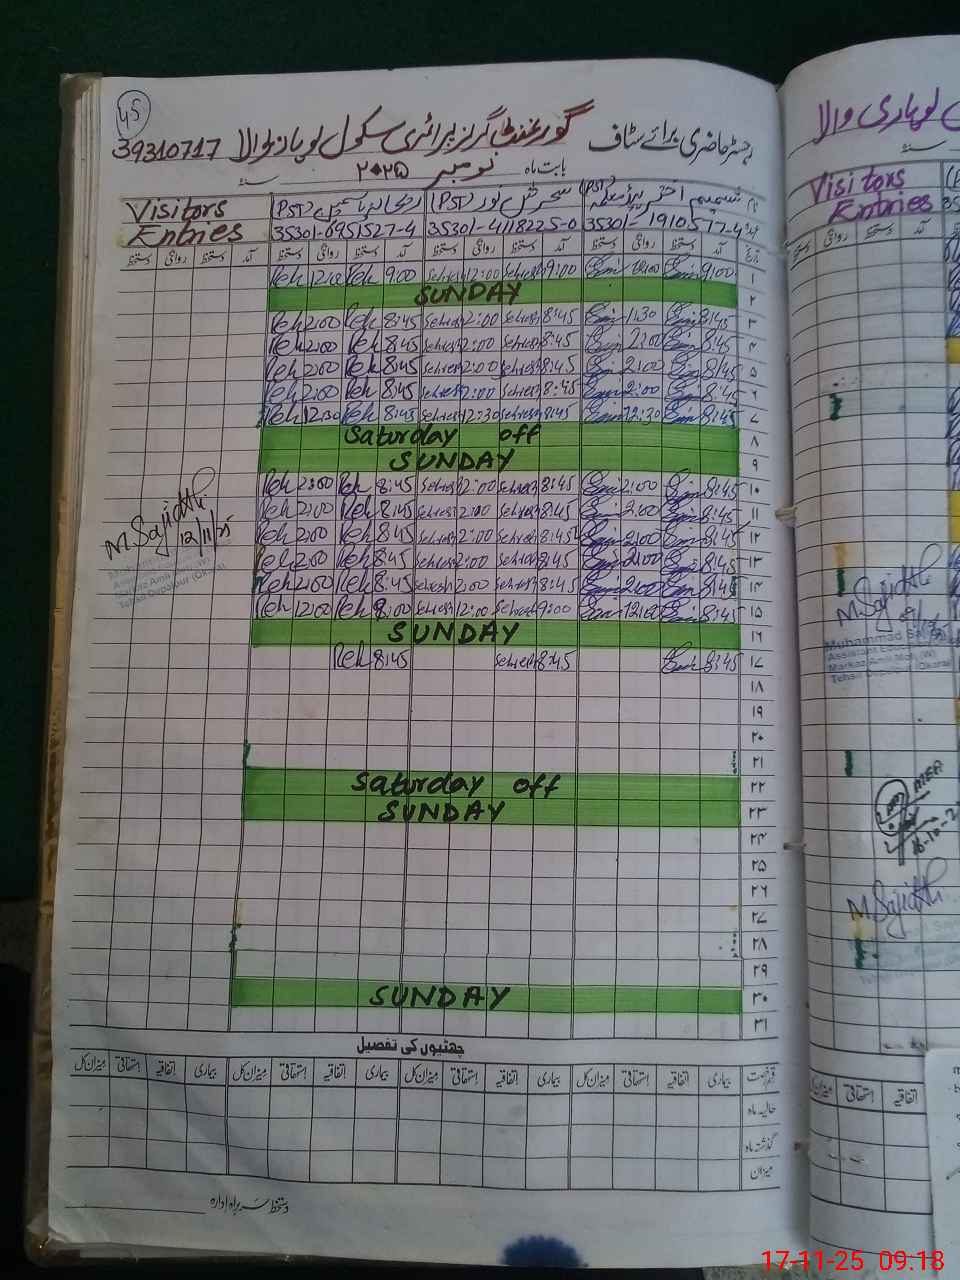 45
رجسٹر حاضری برائے سٹاف گورنمنٹ گرلز پرائمری سکول لوہاری والا 39310717
بابت ماہ نومبر ۲۰۲۵ سنہ
نام شمیم اختر (PST) سحرش نور (PST) ریحانہ یاسمین (PST) Visitors
35301-1910517-4 35301-4118225-0 35301-6951527-4 Entries
تاریخ آمد دستخط روانگی دستخط آمد دستخط روانگی دستخط آمد دستخط روانگی دستخط آمد دستخط روانگی دستخط
۱ 9:00 12:00 Sehrish 9:00 Sehrish 12:00 9:00 Reh 12:00 Reh
۲ SUNDAY
۳ 8:45 1:30 Sehrish 8:45 Sehrish 2:00 8:45 Reh 2:00 Reh
۴ 8:45 2:00 Sehrish 8:45 Sehrish 2:00 8:45 Reh 2:00 Reh
۵ 8:45 2:00 Sehrish 8:45 Sehrish 2:00 8:45 Reh 2:00 Reh
۶ 8:45 2:00 Sehrish 8:45 Sehrish 2:00 8:45 Reh 2:00 Reh
۷ 8:45 12:30 Sehrish 8:45 Sehrish 12:30 8:45 Reh 12:30 Reh
۸ Saturday off
۹ SUNDAY
۱۰ 8:45 2:00 Sehrish 8:45 Sehrish 2:00 8:45 Reh 2:00 Reh
۱۱ 8:45 2:00 Sehrish 8:45 Sehrish 2:00 8:45 Reh 2:00 Reh
۱۲ 8:45 2:00 Sehrish 8:45 Sehrish 2:00 8:45 Reh 2:00 Reh
M. Sajid
12/11/25
۱۳ 8:45 2:00 Sehrish 8:45 Sehrish 2:00 8:45 Reh 2:00 Reh
۱۴ 8:45 2:00 Sehrish 8:45 Sehrish 2:00 8:45 Reh 2:00 Reh
Markaz Amli Moti (W)
Tehsil Depalpur (Okara)
۱۵ 8:45 12:00 Sehrish 9:00 Sehrish 12:00 8:00 Reh 12:00 Reh
۱۶ SUNDAY
۱۷ 8:45 Sehrish 8:45 8:45 Reh
۱۸
۱۹
۲۰
۲۱
۲۲ Saturday off
۲۳ SUNDAY
۲۴
۲۵
۲۶
۲۷
۲۸
۲۹
۳۰ SUNDAY
۳۱
چھٹیوں کی تفصیل
قسم رخصت بیماری اتفاقیہ استحقاقی میزان کل بیماری اتفاقیہ استحقاقی میزان کل بیماری اتفاقیہ استحقاقی میزان کل بیماری اتفاقیہ استحقاقی میزان کل
حالیہ ماہ
گذشتہ ماہ
میزان
دستخط سربراہ ادارہ
لوہاری والا
سنہ
Visitors
Entries
دستخط روانگی دستخط آمد
M. Sajid
Muhammad
Assistant Education
Markaz Amli Moti (W)
Tehsil Depalpur (Okara)
MEA
M. Sajid
اتفاقیہ استحقاقی میزان کل
17-11-25 09.18